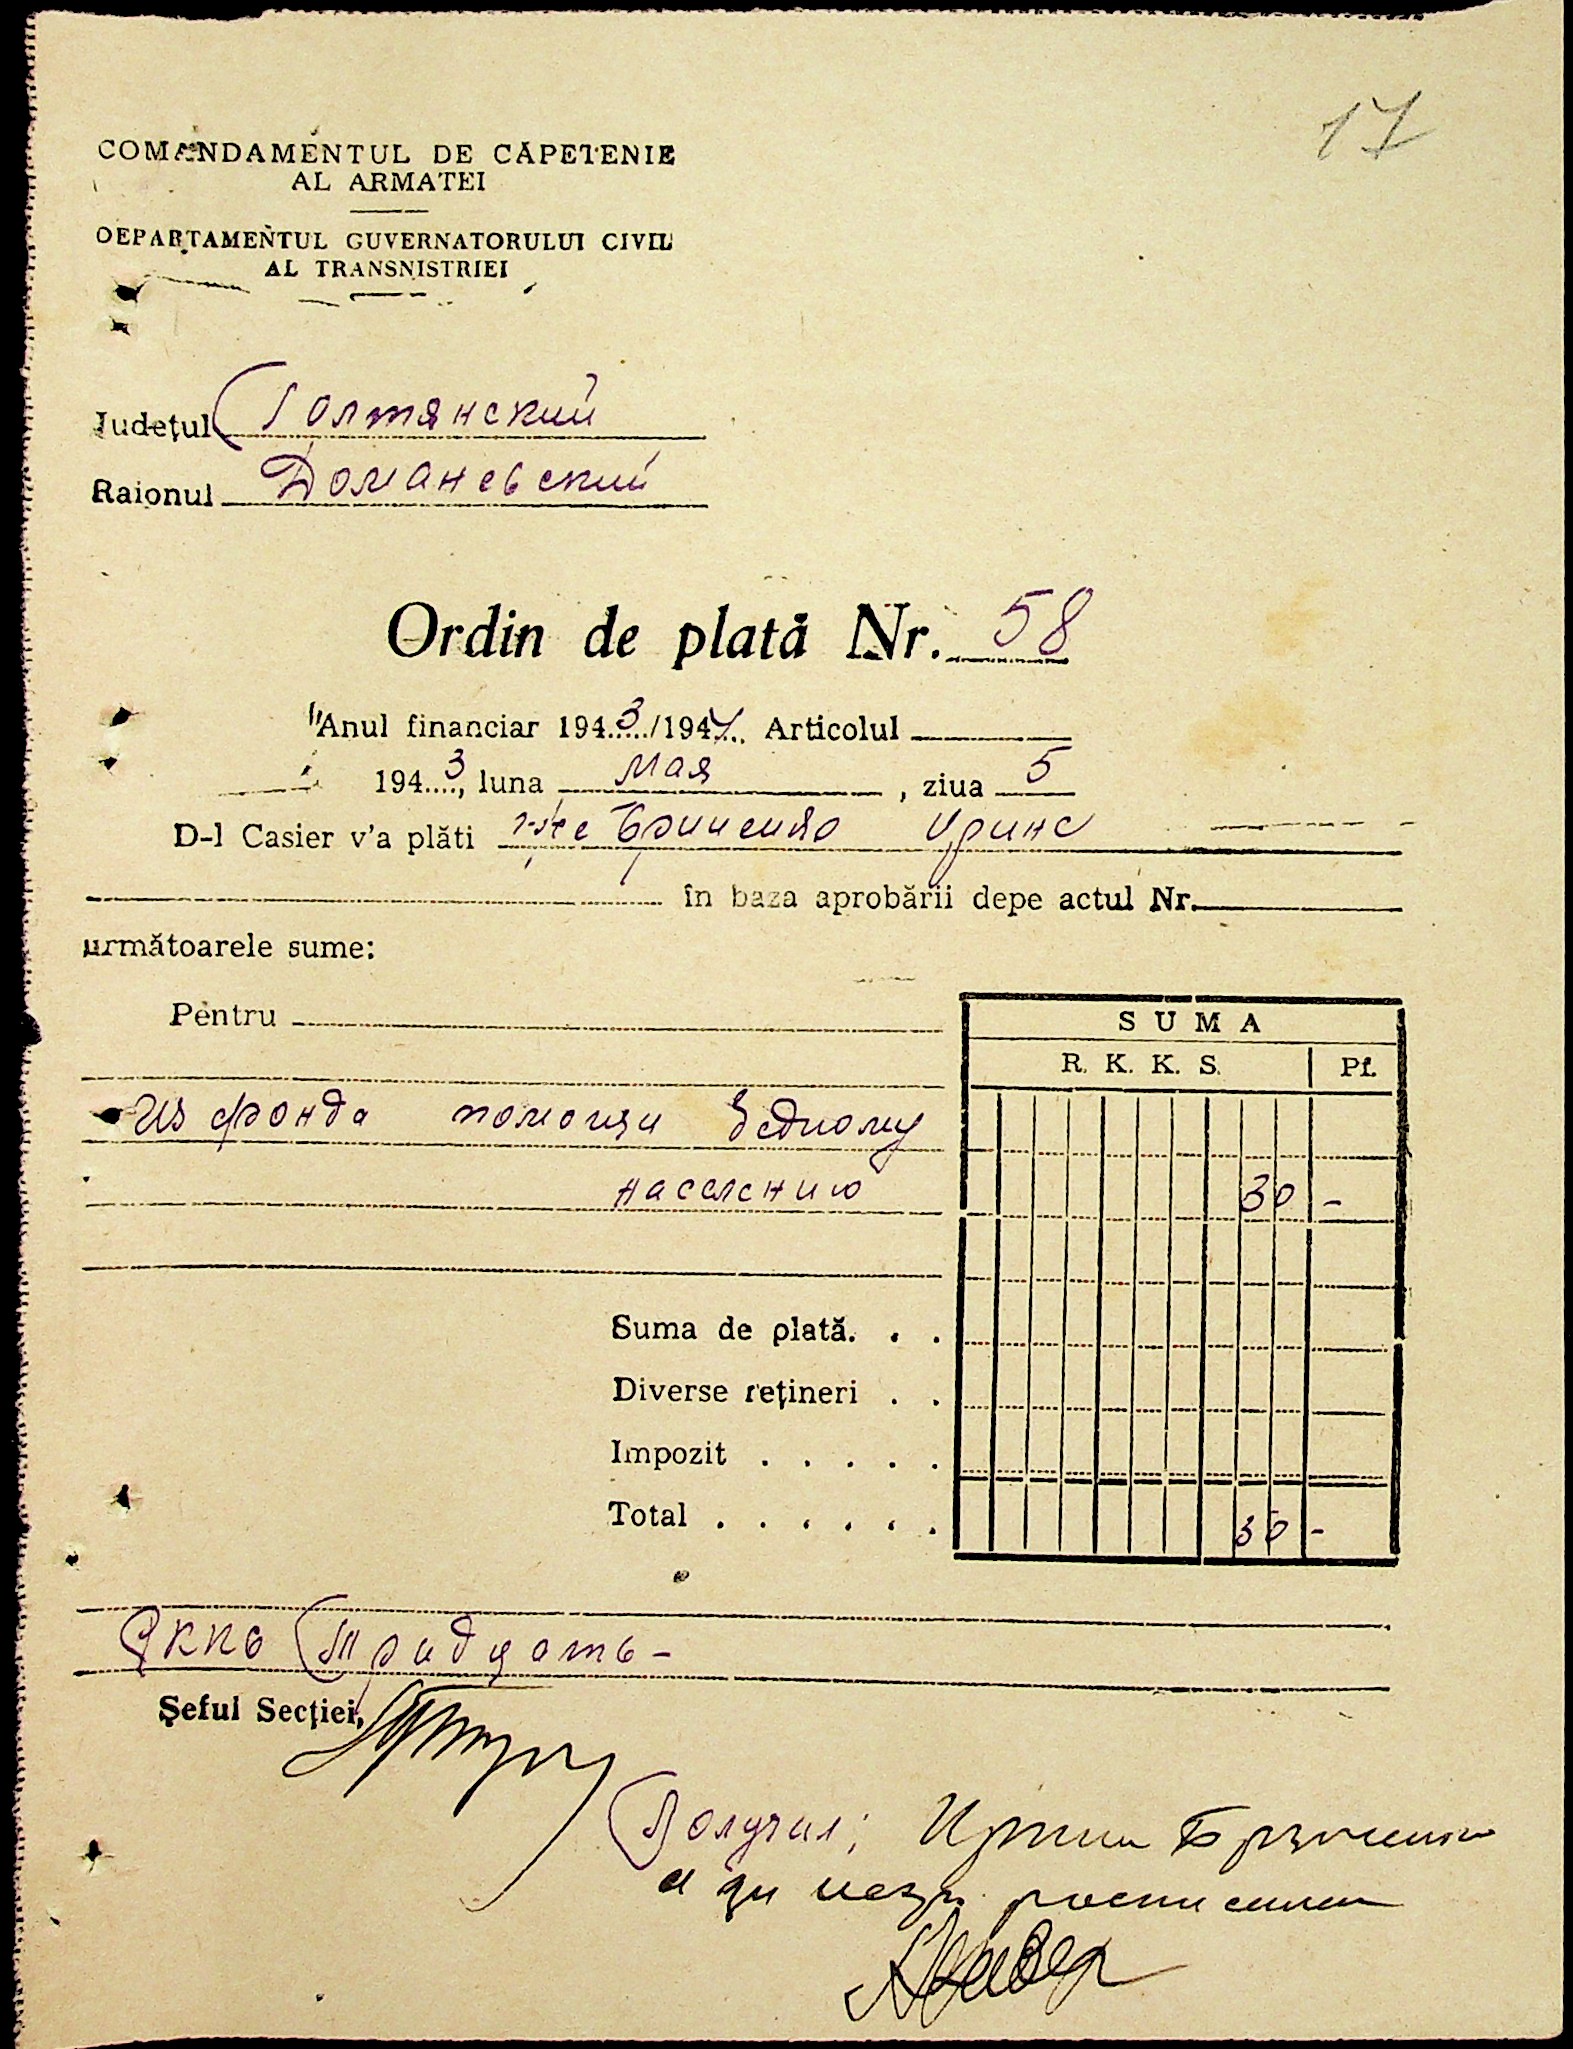 17
COMANDAMENTUL DE CAPETENIE
AL ARMATEI
DEPARTAMENTUL GUVERNATORULUI CIVIL
AL TRANSNISTRIEI
Judeţul Голтянский
Raionul Доманевский
Ordin de plată Nr. 58
Anul financiar 1943/1944 Articolul
1943, luna мая, ziua 5
D-l Casier v'a plăti
în baza aprobării depe actul Nr.
următoarele sume:
Pentru
SUMA
R. K. K. S. Pf.
Из фонда помощи бедному
населению 30 -
Suma de plată. . .
Diverse reţineri . .
Impozit . . . . .
Total . . . . . . 30 -
РККС Тридцать -
Şeful Secţiei,
Получил;